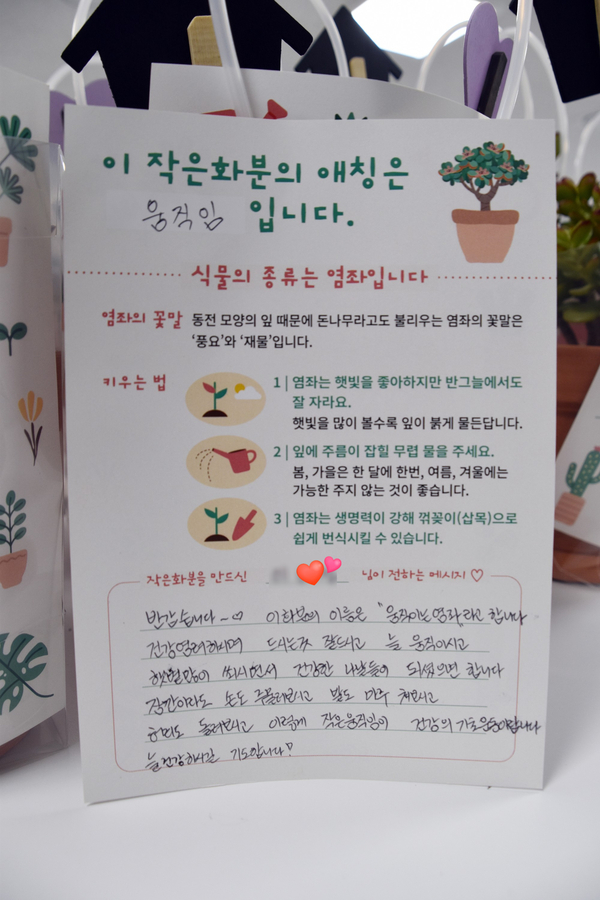 이 작은화분의 애칭은
움직임 입니다.
식물의 종류는 염좌입니다
염좌의 꽃말 동전 모양의 잎 때문에 돈나무라고도 불리우는 염좌의 꽃말은
'풍요'와 '재물'입니다.
키우는 법
1 | 염좌는 햇빛을 좋아하지만 반그늘에서도
잘 자라요.
햇빛을 많이 볼수록 잎이 붉게 물든답니다.
2 | 잎에 주름이 잡힐 무렵 물을 주세요.
봄, 가을은 한 달에 한번, 여름, 겨울에는
가능한 주지 않는 것이 좋습니다.
3 | 염좌는 생명력이 강해 꺾꽂이(삽목)으로
쉽게 번식시킬 수 있습니다.
작은화분을 만드신 님이 전하는 메시지 ♡
반갑습니다~♡ 이 화분의 이름은 "움직이는 염좌"라고 합니다
건강염려하시며 드시는것 잘드시고 늘 움직이시고
햇빛많이 쐬시면서 건강한 나날들이 되셨으면 합니다
잠깐이라도 손도 주물러보시고 발도 마주 쳐보시고
허리도 돌려보시고 이렇게 작은움직임이 건강의 기초운동이랍니다
늘 건강하시길 기도합니다!